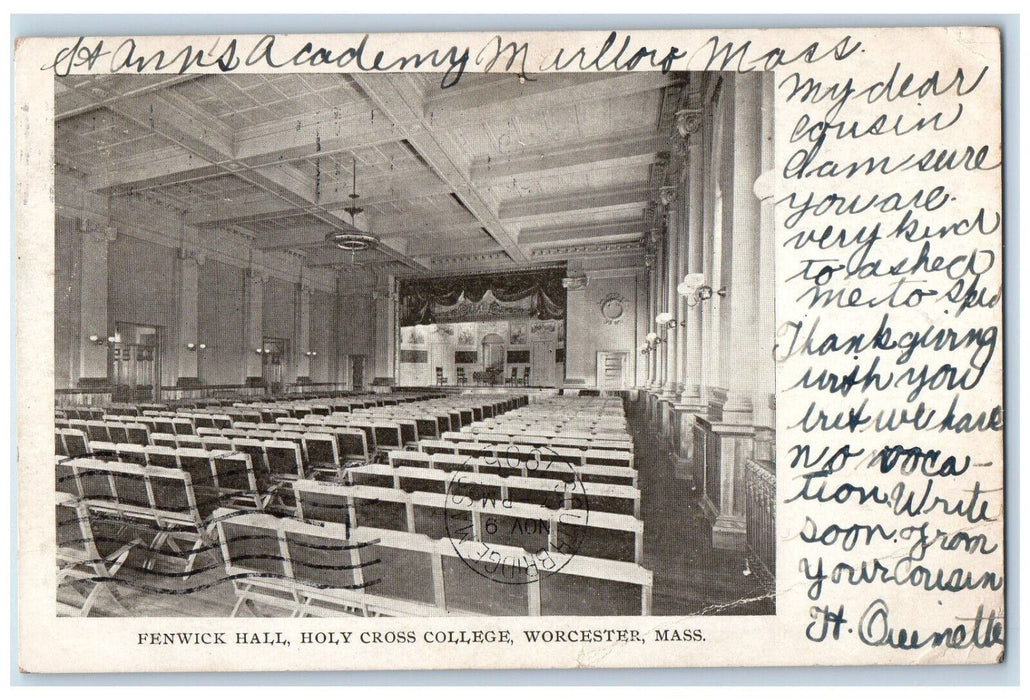 St Ann's Academy Murllow Mass.
My dear
cousin
I am sure
you are
very kind
to asked
me to spd
Thanksgiving
with you
but we have
no voca-
tion. Write
soon. from
your cousin
H.
NOV 9
PM
1905
FENWICK HALL, HOLY CROSS COLLEGE, WORCESTER, MASS.